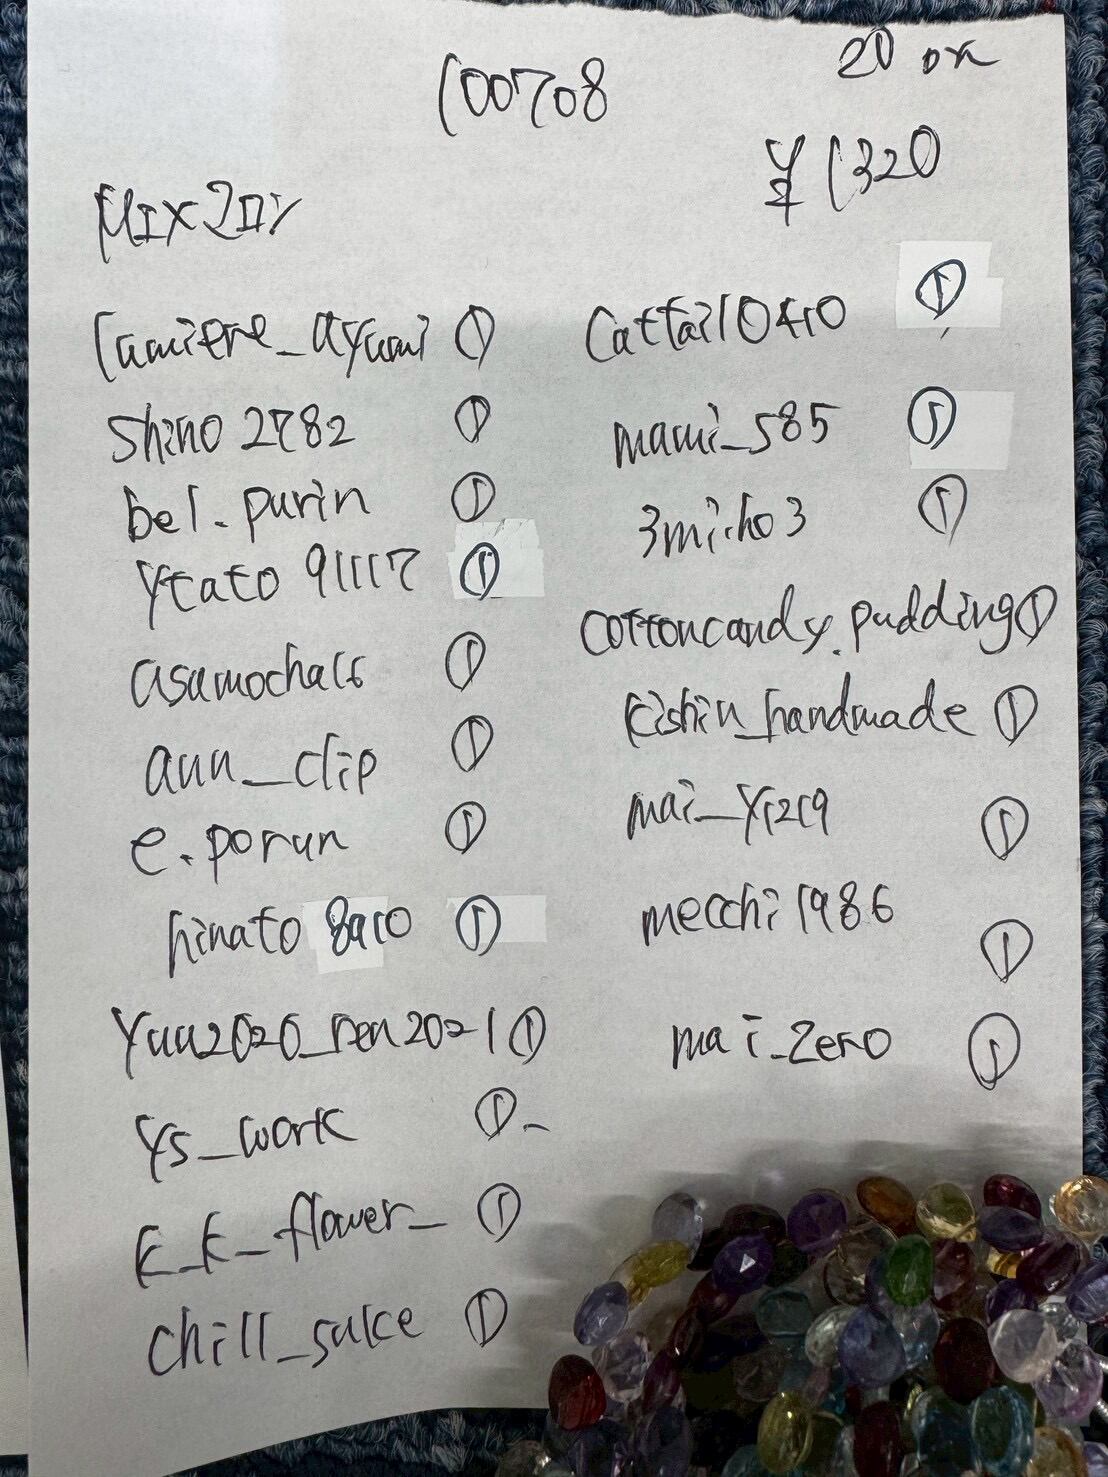 100708
20 on
¥1320
MIX20ﾝ
lumiere_ayumi ①
shino2782 ①
bel.purin ①
ytato91117 ①
asamocha16 ①
aun_clip ①
e.porun ①
hinato8910 ①
yuu2020_ren2021 ①
ys_work ①
k_k_flower_ ①
chill_sulce ①
Cattail0410 ①
mami_585 ①
3miho3 ①
cottoncandy.pudding ①
kishin_handmade ①
mai_y1219 ①
mecchi1986 ①
mai_zero ①